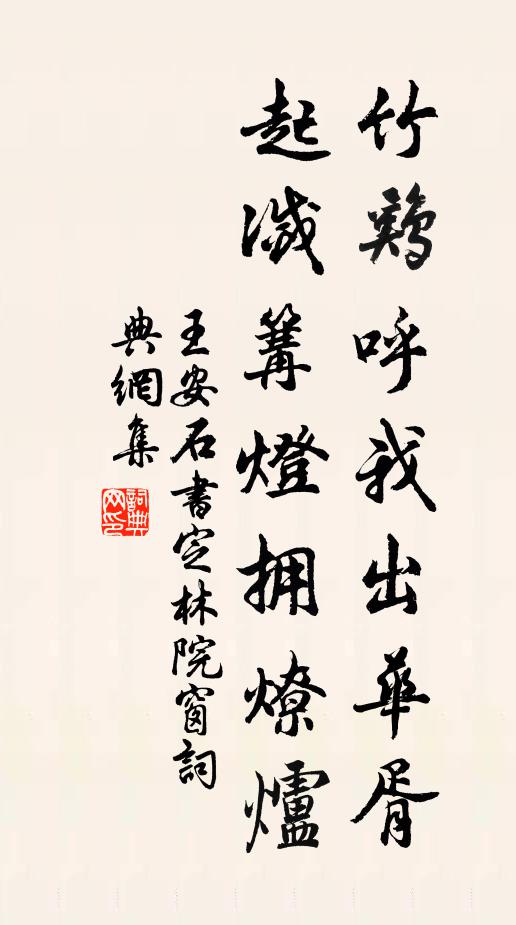 竹鷄呼我出華胥
起滅篝燈拥燎爐
王安石書定林院窗詞
典網集
詞典
网印